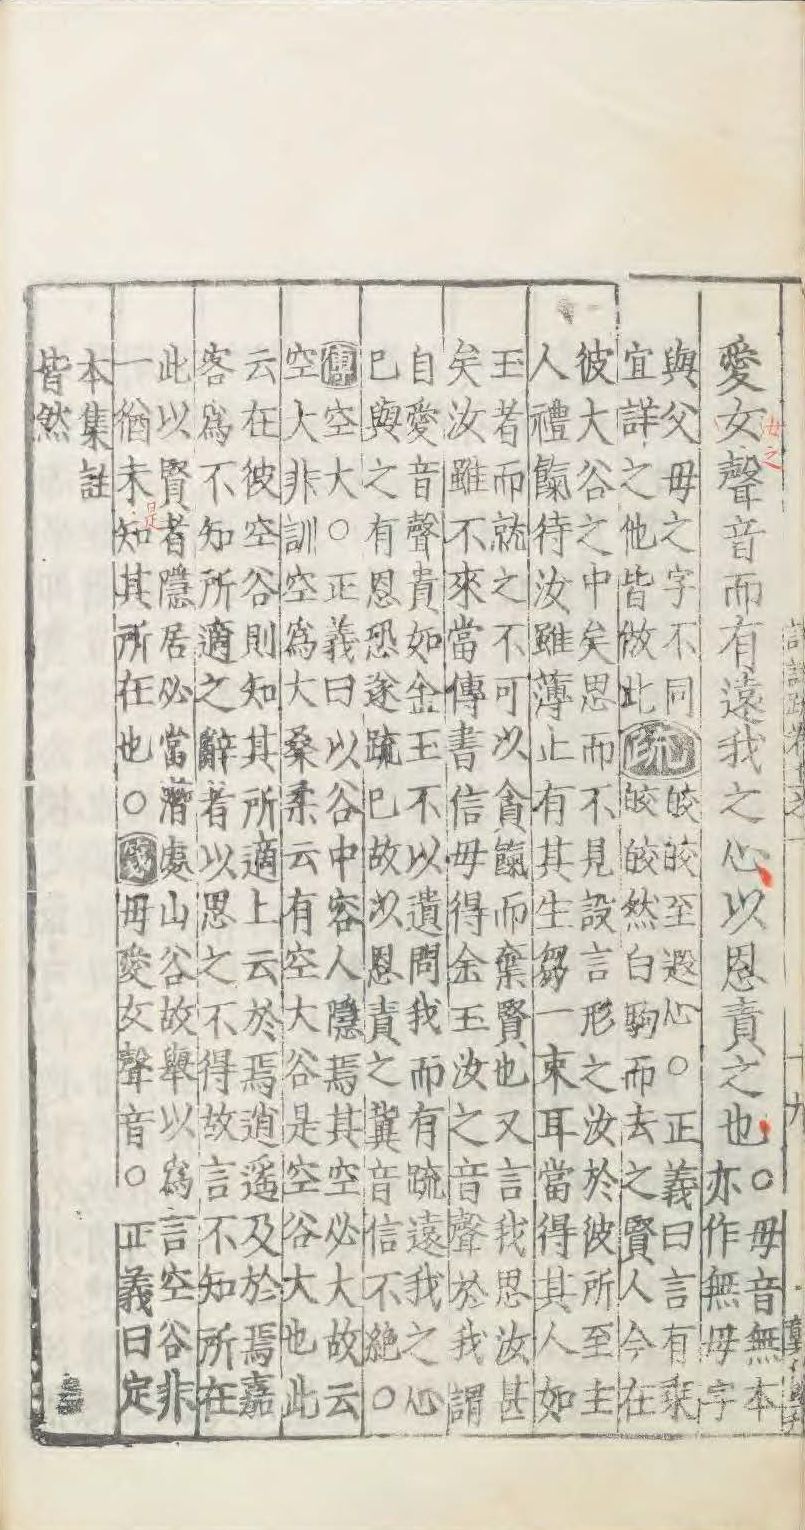 愛女聲音而有遠我之心以恩責之也○毋音無本
亦作無毋字
與父毋之字不同
宜詳之他皆倣此
疏
皎皎至遐心○正義曰言有乗
皎皎然白駒而去之賢人今在
彼大谷之中矣思而不見設言形之汝於彼所至主
人禮餼待汝雖薄止有其生芻一束耳當得其人如
玉者而就之不可以貪餼而棄賢也又言我思汝甚
矣汝雖不來當傳書信毋得金玉汝之音聲於我謂
自愛音聲貴如金玉不以遺問我而有䟽遠我之心
已與之有恩恐遂䟽已故以恩責之兾音信不絶○
傳空大○正義曰以谷中容人隱焉其空必大故云
空大非訓空爲大桑柔云有空大谷是空谷大也此
云在彼空谷則知其所適上云於焉逍遥及於焉嘉
客爲不知所適之辭者以思之不得故言不知所在
此以賢者隱居必當潛處山谷故舉以爲言空谷非
一猶未知其所在也○箋毋愛女聲音○正義曰定
本集註
皆然
女之
是
十九